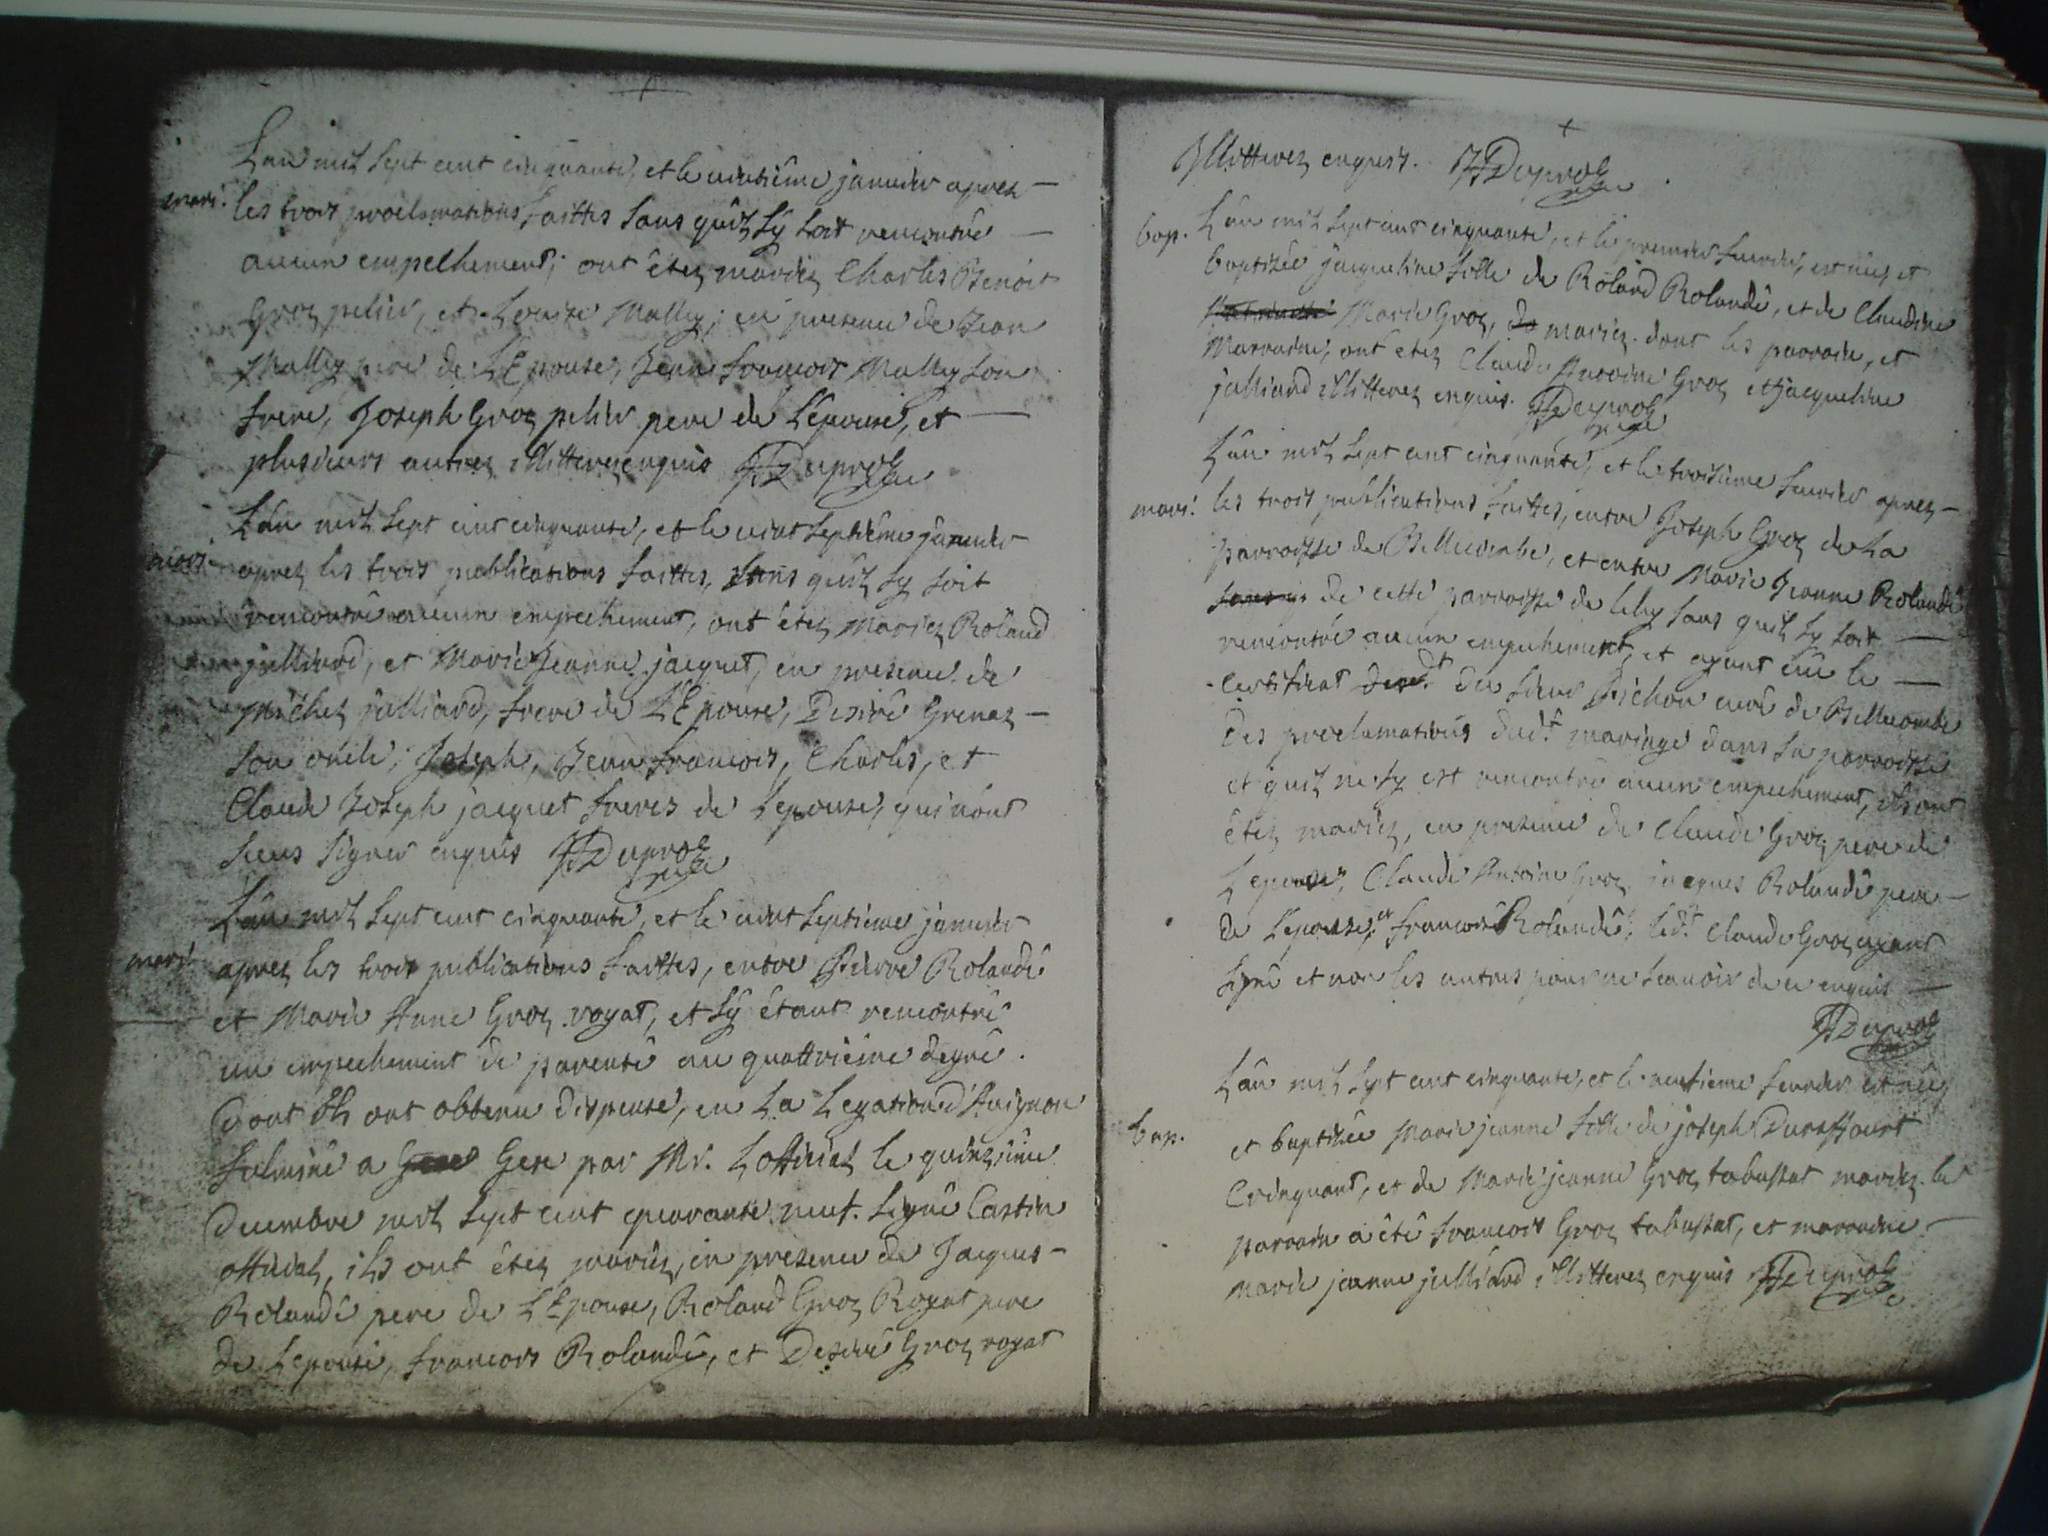 L'an mil sept cent cinquante, et le vintiême janvier aprez
mari. les trois proclamations faittes sans qu'il s'y soit rencontré
aucun empechement; ont êtez mariez Charles Benoit
Groz pelier, et Louise Mallez; en presence de Jean
Mallez pere de L'Epouse, Jean francois Mallez son
frere, Joseph Groz pelier pere de L'epoux, et
plusieurs autres illitterez enquis Duproz
curé
L'an mil sept cent cinquante, et le vint septiême janvier
mari. aprez les trois publications faittes, sans qu'il s'y soit
rencontré aucun empechement, ont êtez mariez Roland
julliard, et Marie Jeanne jacquet, en presence de
Michel julliard, frere de L'Epoux, Desiré Grenaz
son oncle; Joseph, Jean francois, Charles, et
Claude Joseph jacquet freres de L'epouse, qui n'ont
sceus signer enquis Duproz
curé
L'an mil sept cent cinquante, et le vint septieme janvier
mari. aprez les trois publications faittes, entre Pierre Rolandé
et Marie Anne Groz royat, et s'y êtant rencontré
un empechement de parenté au quattriéme degré.
Dont ils ont obtenu dispense, en La Legation d'Avignon
fulminé a Gex par Mr. L'official le quinziéme
Decembre mil sept cent quarante neuf. signé Castin
official, ils ont êtez mariez, en presence de Jacques
Rolandé pere de L'Epoux, Roland Groz Royat pere
de L'epouse, francois Rolandé, et Desiré Groz royat
Illitterez enquis. Duproz
curé
bap. L'an mil sept cent cinquante, et le premier fevrier, est née, et
baptizée jacqueline fille de Roland Rolandé, et de Claudine
Marie Groz, mariez. dont les parrain, et
Marraine, ont etez Claude Antoine Groz et jacqueline
julliard illitterez enquis. Duproz
curé
L'an mil sept cent cinquante, et le troisieme fevrier aprez
mari. les trois publications faittes, entre Joseph Groz de La
parroisse de Bellecombe, et entre Marie Jeanne Rolandé
de cette parroisse de lelex sans qu'il s'y soit
rencontré aucun empechement, et ayant eüe le
certificat du sieur Pichon curé de Bellecombe
des proclamations dud.t mariage dans sa parroisse
et qu'il ne s'y est rencontré aucun empechement, ils ont
êtez mariez, en presence de Claude Groz pere de
L'epoux, Claude Antoine Groz jacques Rolandé pere
de L'epouse, et francois Rolandé, led.t Claude Groz ayant
signé et non les autres pour ne scavoir de ce enquis
Duproz
curé
L'an mil sept cent cinquante, et le neufieme fevrier est née
bap. et baptizée Marie jeanne fille de joseph Duraffourt
Crinquant, et de Marie jeanne Groz tabussat mariez. le
parrain a êté francois Groz tabussat, et marraine
marie jeanne julliard illitterez enquis Duproz
curé